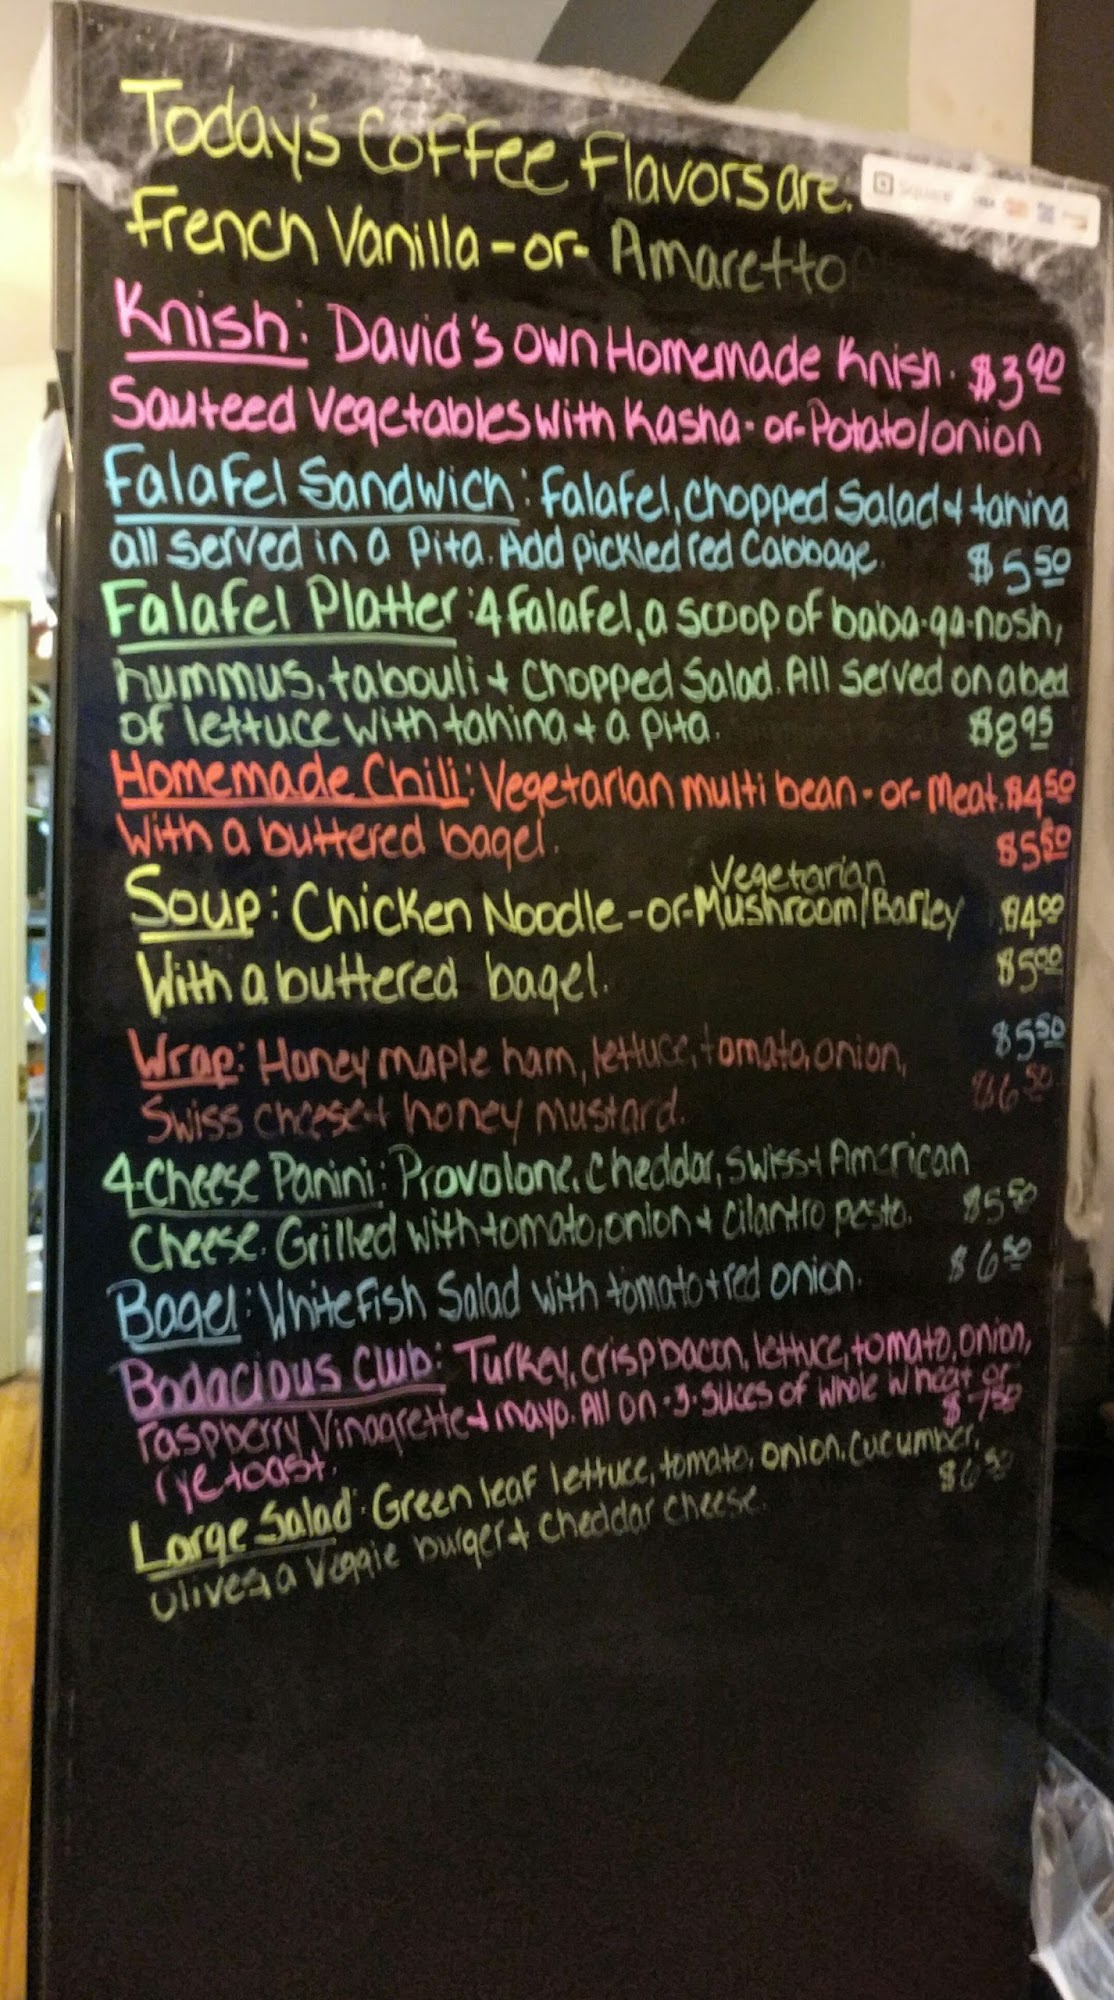 Today's Coffee Flavors are:
French Vanilla - or - Amaretto
Square
Knish: David's own Homemade Knish. $3.90
Sauteed Vegetables with Kasha - or - Potato/onion
Falafel Sandwich: falafel, chopped salad + tahina
all served in a pita. Add pickled red Cabbage. $5.50
Falafel Platter: 4 falafel, a scoop of baba-ga-nosh,
hummus, tabouli + chopped salad. All served on a bed
of lettuce with tahina + a pita. $8.95
Homemade Chili: Vegetarian multi bean - or - Meat. $4.50
With a buttered bagel. $5.50
Vegetarian
Soup: Chicken Noodle - or - Mushroom/Barley $4.00
With a buttered bagel. $5.00
$5.50
Wrap: Honey maple ham, lettuce, tomato, onion,
Swiss cheese + honey mustard. $6.50
4-Cheese Panini: Provolone, Cheddar, Swiss + American
Cheese. Grilled with tomato, onion + cilantro pesto. $5.50
Bagel: Whitefish Salad with tomato + red onion. $6.50
Bodacious Club: Turkey, crisp bacon, lettuce, tomato, onion,
raspberry Vinagrette + mayo. All on -3- slices of whole wheat or
rye toast. $7.50
Large Salad: Green leaf lettuce, tomato, onion, cucumber,
olives, a Veggie burger + cheddar cheese. $6.50